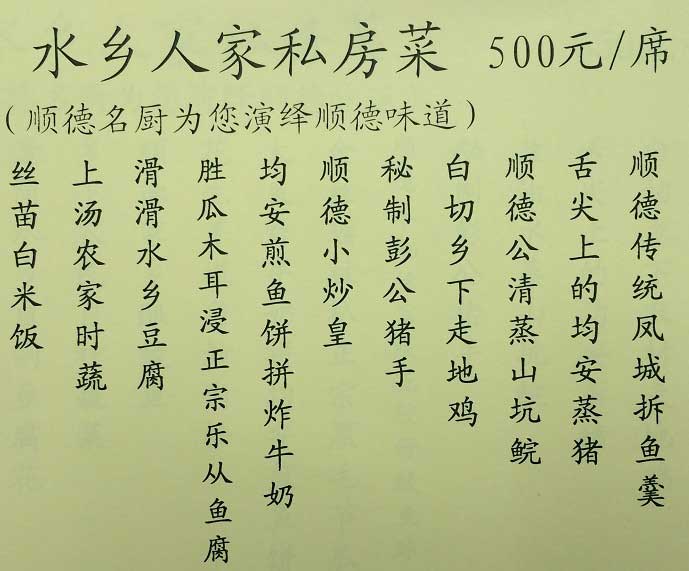 水乡人家私房菜 500元/席
(顺德名厨为您演绎顺德味道)
顺德传统凤城拆鱼羹
舌尖上的均安蒸猪
顺德公清蒸山坑鲩
白切乡下走地鸡
秘制彭公猪手
顺德小炒皇
均安煎鱼饼拼炸牛奶
胜瓜木耳浸正宗乐从鱼腐
滑滑水乡豆腐
上汤农家时蔬
丝苗白米饭